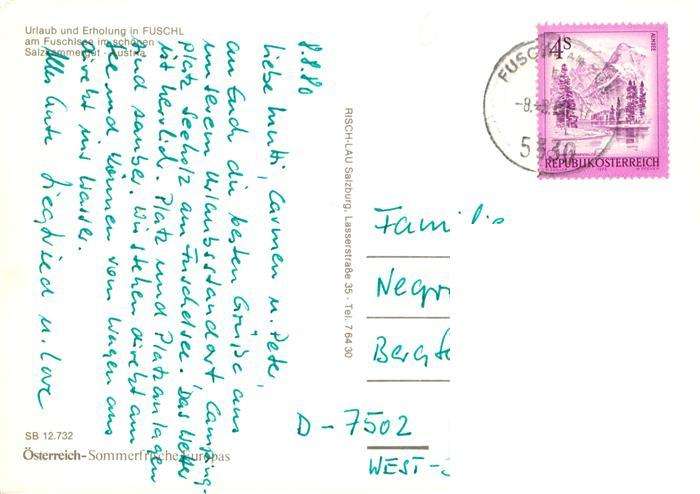 Urlaub und Erholung in FUSCHL
am Fuschlsee im schönen
Salzkammergut - Austria
8.8.80
Liebe Mutti, Carmen u. Peter,
an Euch die besten Grüße aus
unserem Urlaubsstandort, Camping-
platz Seeholz am Fuschlsee. Das Wetter
ist herrlich. Platz und Platzanlagen
sind sauber. Wir stehen direkt am
See und können vom Wagen aus
direkt ins Wasser.
Alles Gute Siegfried u. Love
SB 12.732
Österreich-Sommerfrische Europas
RISCH-LAU Salzburg, Lasserstraße 35 - Tel. 7 64 30
4S
ALMSEE
REPUBLIK ÖSTERREICH
FUSCHL AM
-8.
5330
Famili
Negr
Bergfe
D-7502
WEST-